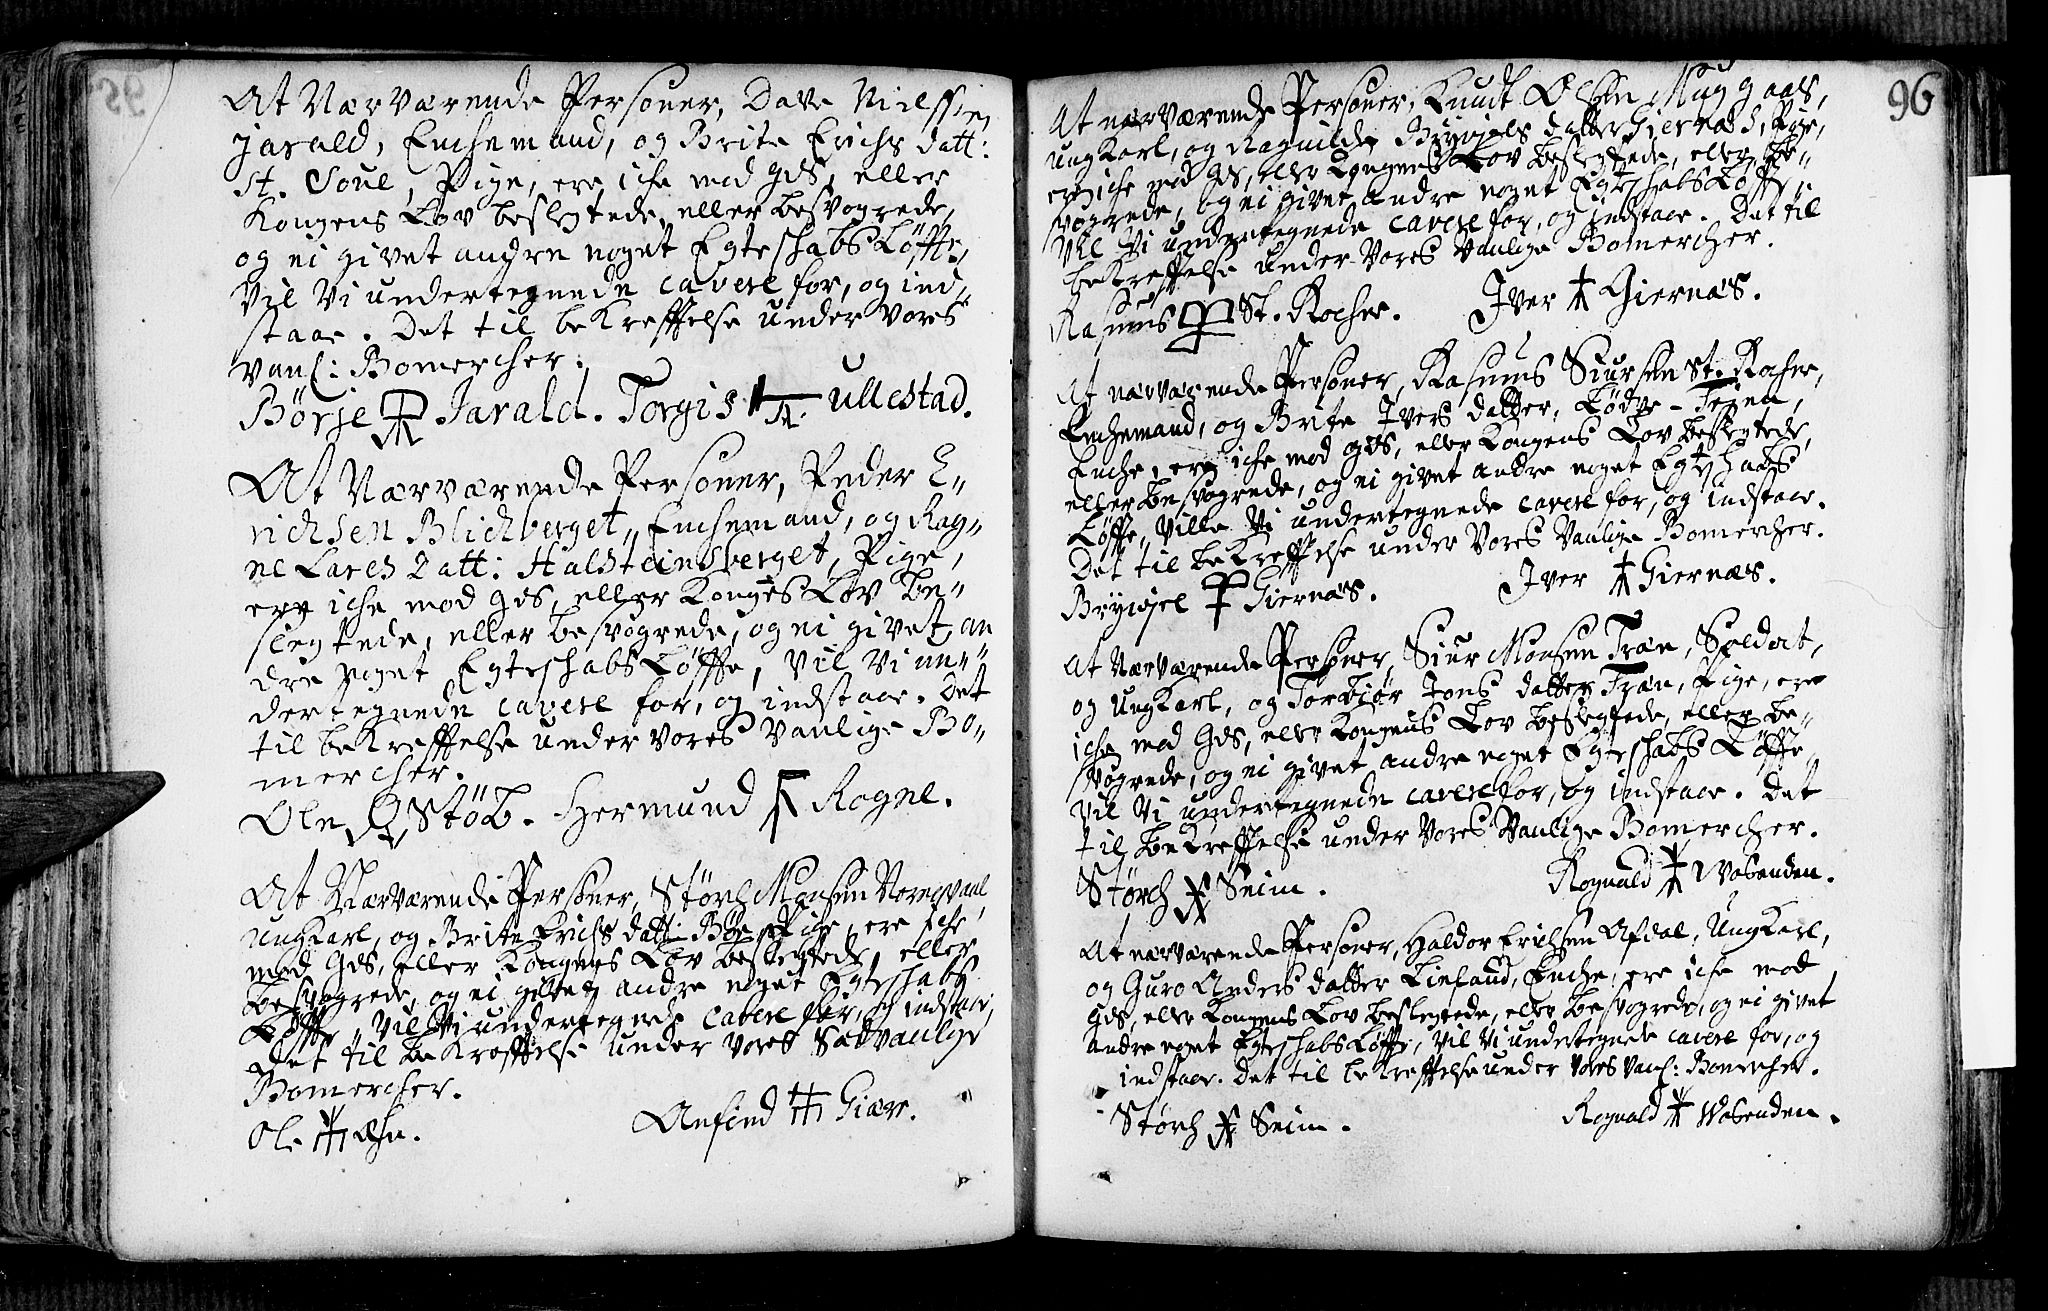 At Nærværende Personer, Dave Nielssen
Jarald, Enchemand, og Brite Erichs datt:
st. Soul, Pige, ere iche mod Gds, eller
Kongens Lov beslegtede, eller besvogrede,
og ei givet andre noget Egteschabs Løffte,
Vil Vi undertegnede cavere for, og ind„
staae. Det til bekreffelse under Vores
vanl: Bomercher:
Børje Jarald. Torgis Ullestad.
At Nærværende Personer, Peder E„
richsen Blichberget, Enchemand, og Rag„
ne Lares datt: Halsteinsberget, Pige,
ere iche mod Gds, eller Konges Lov be„
slegtede, eller besvogrede, og ei givet an
dre noget Egteschabs Løffte, Vil Vi un„
dertegnede cavere for, og indstaae. Det
til bekreffelse under Vores Vanlige Bo„
mercher.
Ole Støb. Hermund Rogne.
At Nærværende Personer, Størch Monsen
UngKarl, og Brite Erichs datt: Bøe, Pige, ere iche
mod Gds, eller Kongens Lov beslegtede, eller
besvogrede, og ei givet andre noget Egteschabs
Løffte, Vil Vi undertegnede cavere for, og indstaae,
Det til bekreffelse under Vores Sædvanlige
Bomercher.
Ole Anfind Giære.
96
At nærværende Personer, Knudt Olsen Muggaas,
UngKarl, og Ragnilde Bryngels datter Giernæs, Pige,
ere iche mod Gds, eller Kongens Lov beslegtede, eller be„
svogrede, og ei givet andre noget Egteschabs Løffte,
Vil Vi undertegnede cavere for, og indstaae. Det til
bekreffelse under Vores Vanlige Bomercher.
Rasmus St. Rocher. Iver Giernæs.
At nærværende Personer, Rasmus Siursen St. Rocher,
Enchemand, og Brite Ivers datter, Lødve-Teien,
Enche, ere iche mod Gds, eller Kongens Lov beslegtede,
eller besvogrede, og ei givet andre noget Egteschabs
Løffte, Ville Vi undertegnede cavere for, og indstaae.
Det til bekreffelse under Vores Vanlige Bomercher.
Bryngel Giernæs. Iver Giernæs.
At Nærværende Personer, Siur Monsen Træn, Soldat,
og UngKarl, og Torbiør Jons datter Træn, Pige, ere
iche mod Gds, eller Kongens Lov beslegtede, eller be„
svogrede, og ei givet andre noget Egteschabs Løffte,
Vil Vi undertegnede cavere for, og indstaae. Det
til bekreffelse under Vores Vanlige Bomercher.
Størch Seim. Rognald Wosenden.
At nærværende Personer, Haldor Erichsen Afdal, UngKarl,
og Guro Anders datter Linland, Enche, ere iche mod
Gds, eller Kongens Lov beslegtede, eller besvogrede, og ei givet
andre noget Egteschabs Løffte, Vil Vi undertegnede cavere for, og
indstaae. Det til bekreffelse under Vores vanl: Bomercher.
Størch Seim. Rognald Wosenden.